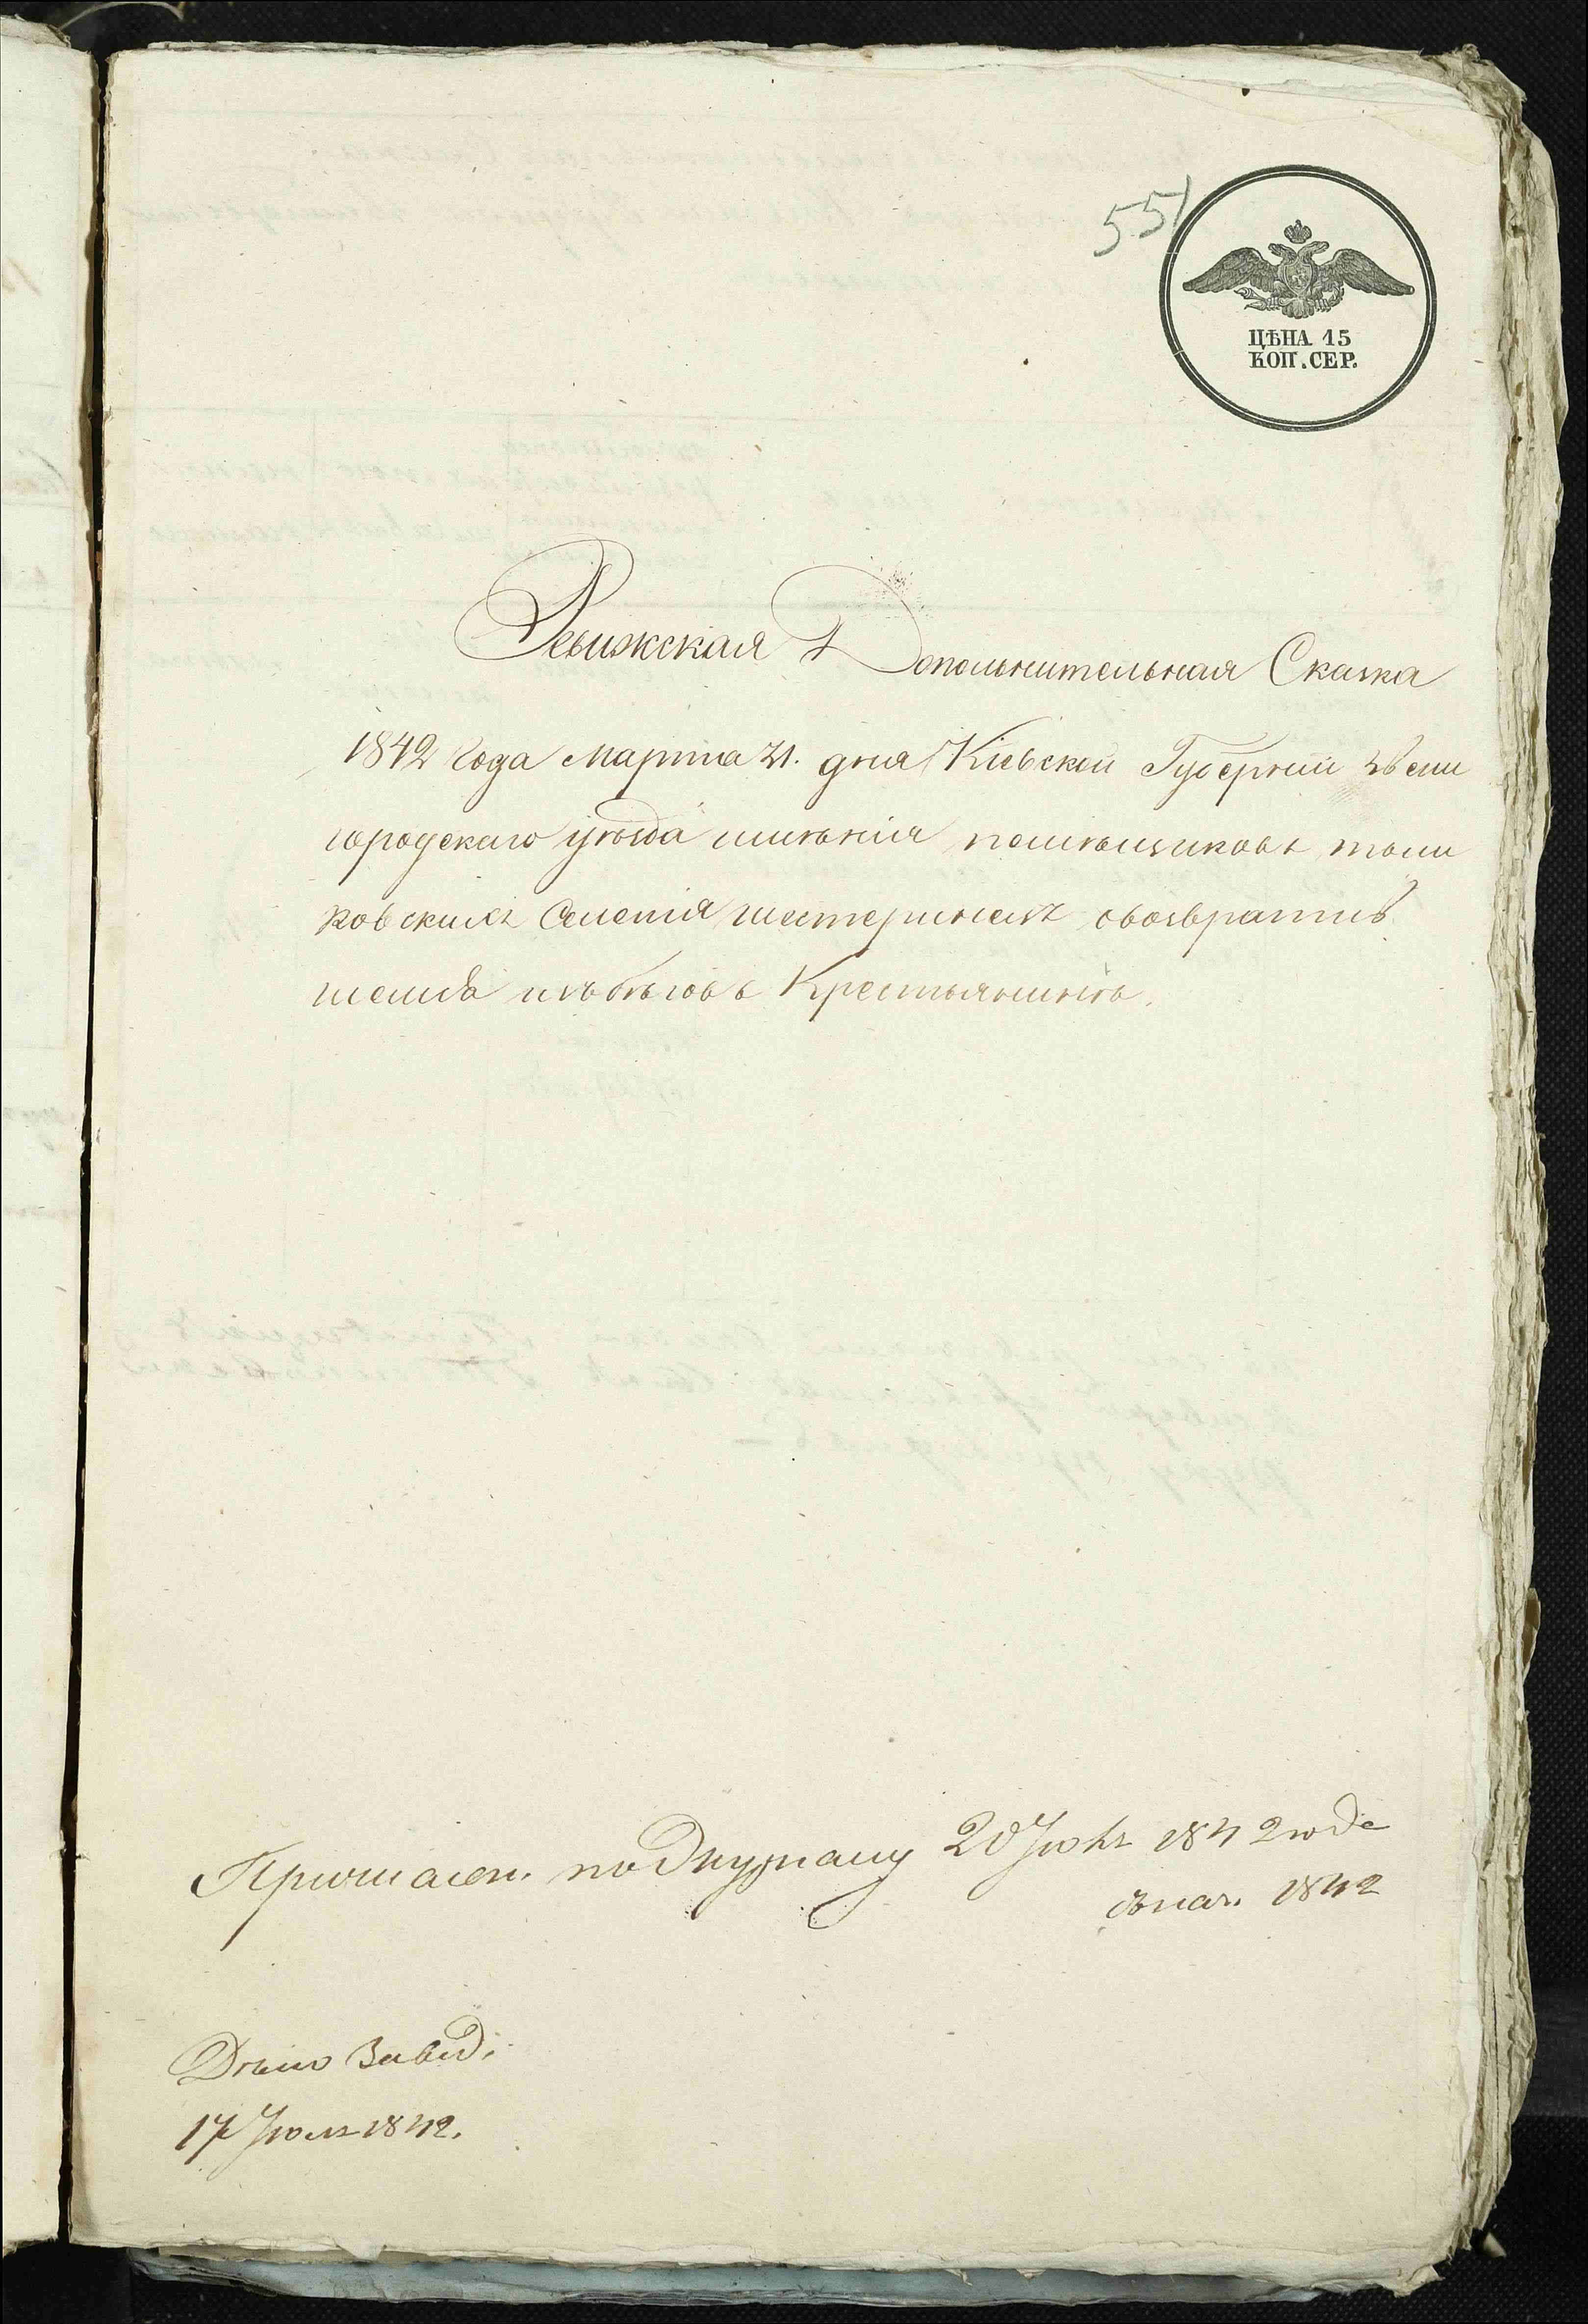 551
ЦѢНА 15
КОП. СЕР.
Ревижская Дополнительная Сказка
1842 года марта 31. дня Кіевской Губерніи звени
городскаго уѣзда имѣнія помѣщиковъ
ковскихъ Селенія шестеринецъ овозвратив
шемся изъ бѣговъ Крестьянинѣ.
20 1842 года
1842
Дѣло завед.
17 Іюля 1842.